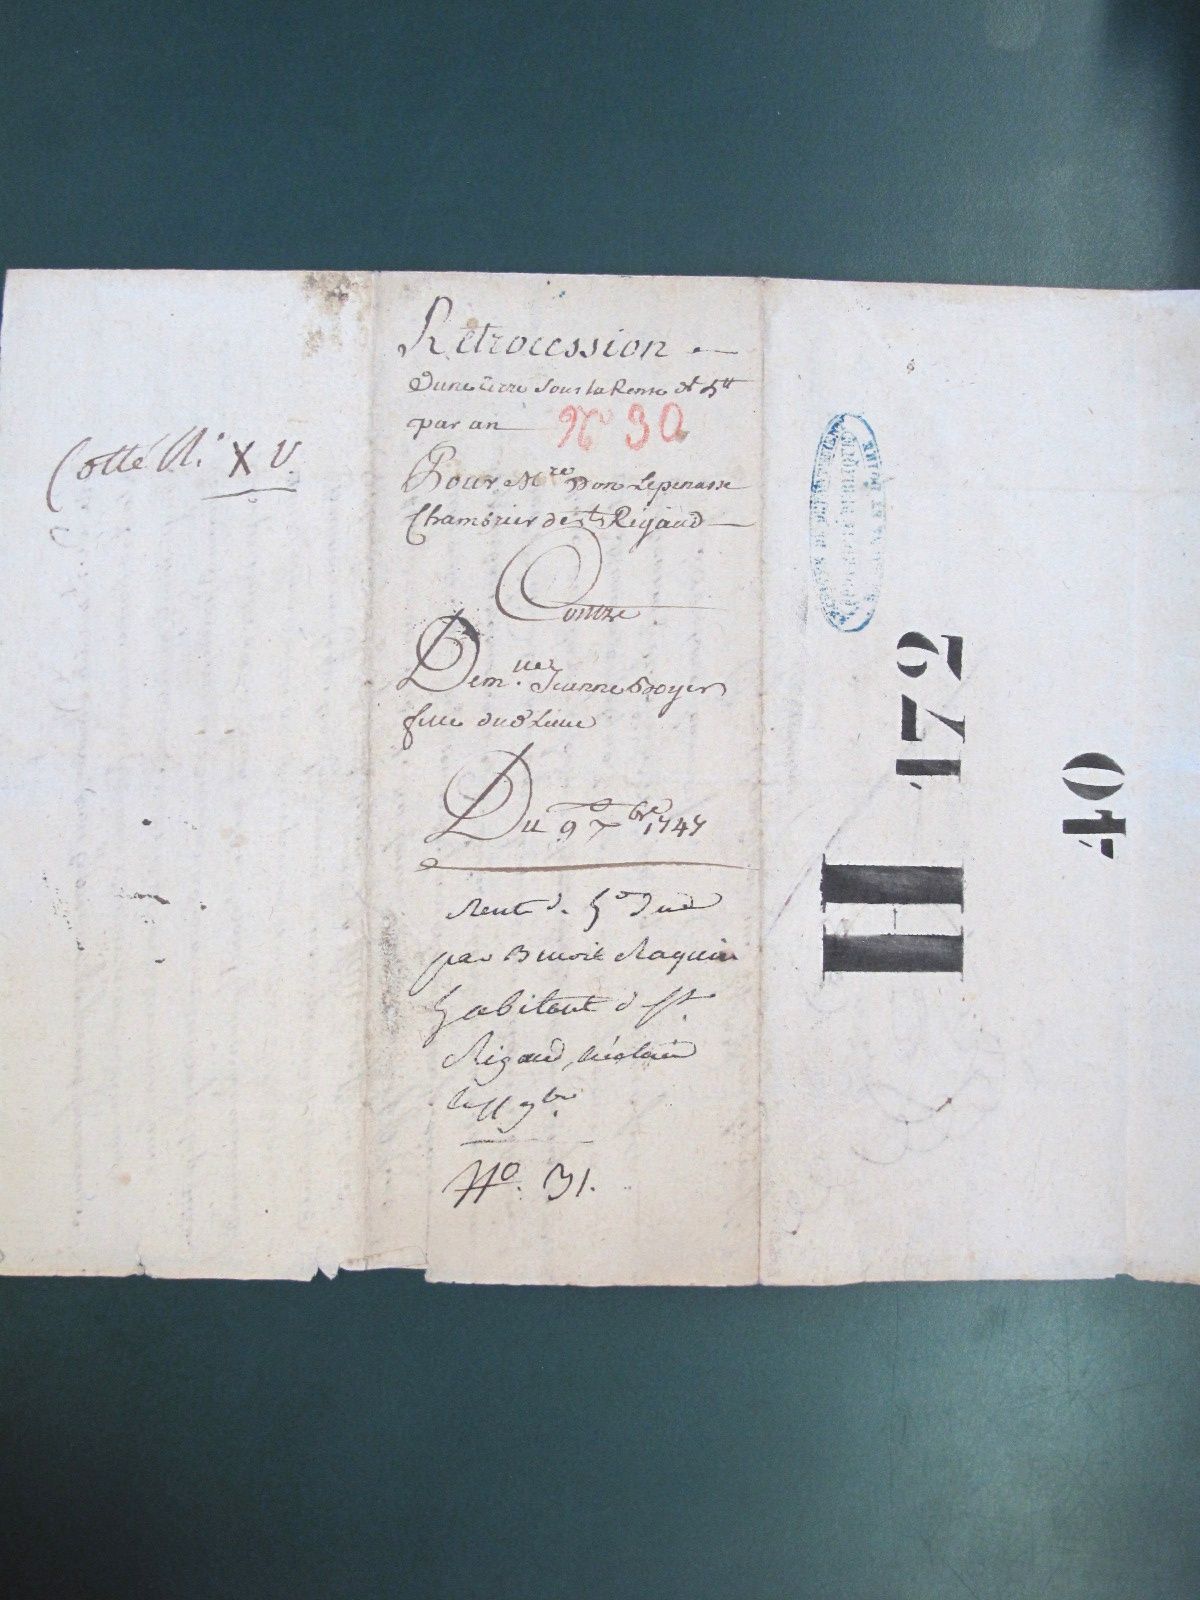 Cotte N.° XV.
Rétrocession
D'une terre sous la Rente de 5tt
par an
N° 30
Pour Mre Dom Lepinasse
Chambrier de St Rigaud
Contre
Demlle Jeanne Boyer
fille du Sr
Du 9 7bre 1747
Rente de 5# due
par Benoit Raquin
habitant d St.
Rigaud
le 11 9bre
N°. 31.
H 172
40